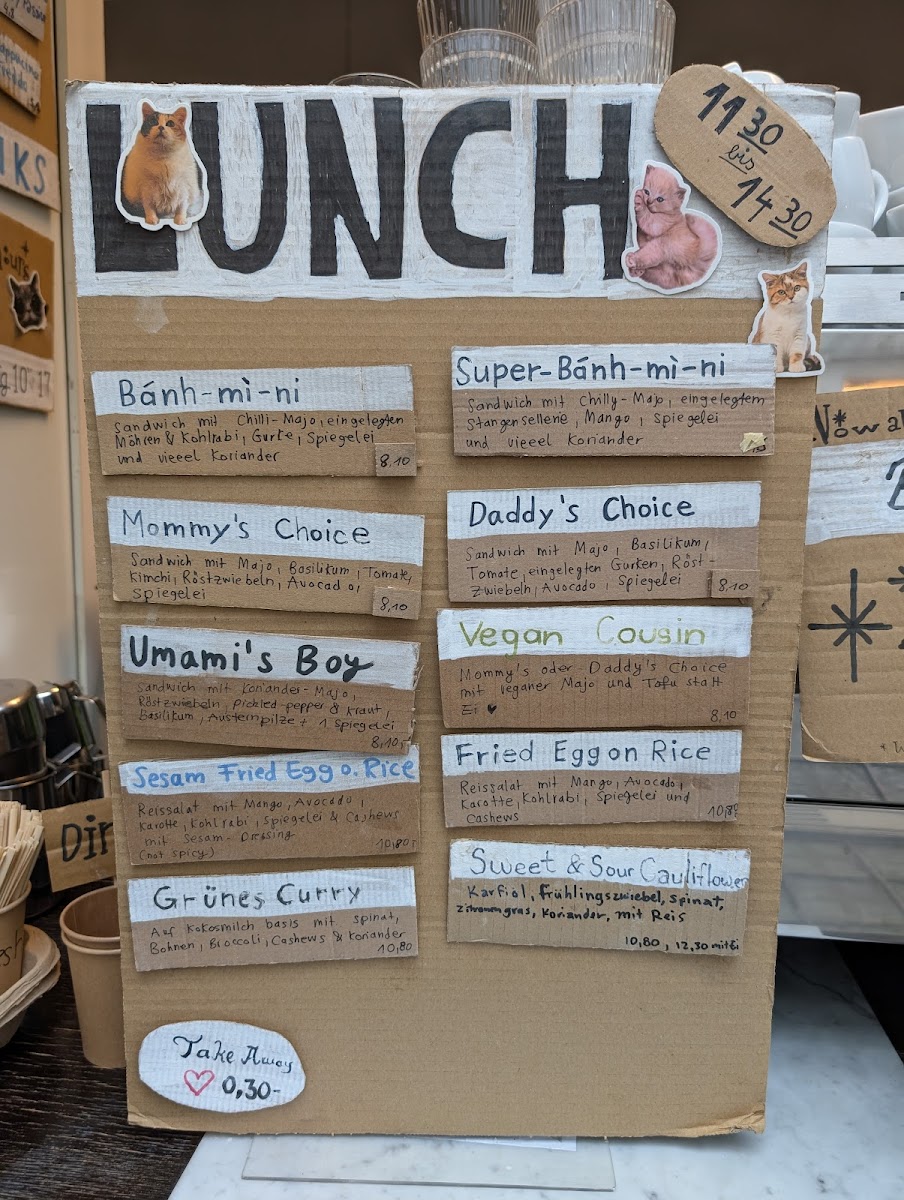 LUNCH
11 30
bis
14 30
Bánh-mì-ni
Sandwich mit Chilli-Majo, eingelegten
Möhren & Kohlrabi, Gurke, Spiegelei
und vieeel Koriander
8,10
Super-Bánh-mì-ni
Sandwich mit Chilly-Majo, eingelegtem
Stangensellerie, Mango, Spiegelei
und vieeel Koriander
Mommy's Choice
Sandwich mit Majo, Basilikum, Tomate,
Kimchi, Röstzwiebeln, Avocado,
Spiegelei
8,10
Daddy's Choice
Sandwich mit Majo, Basilikum,
Tomate, eingelegten Gurken, Röst-
zwiebeln, Avocado, Spiegelei
8,10
Umami's Boy
Sandwich mit Koriander-Majo,
Röstzwiebeln, pickled-pepper & Kraut,
Basilikum, Austernpilze + 1 Spiegelei
8,10
Vegan Cousin
Mommy's oder Daddy's Choice
mit veganer Majo und Tofu statt
Ei ♥
8,10
Sesam Fried Egg o. Rice
Reissalat mit Mango, Avocado,
Karotte, Kohlrabi, Spiegelei & Cashews
mit Sesam-Dressing
(not spicy)
10,80
Fried Egg on Rice
Reissalat mit Mango, Avocado,
Karotte, Kohlrabi, Spiegelei und
Cashews
10,80
Grünes Curry
Auf Kokosmilch basis mit Spinat,
Bohnen, Broccoli, Cashews & Koriander
10,80
Sweet & Sour Cauliflower
Karfiol, Frühlingszwiebel, Spinat,
Zitronengras, Koriander, mit Reis
10,80, 12,30 mit Ei
Take Away
♡ 0,30-
Now